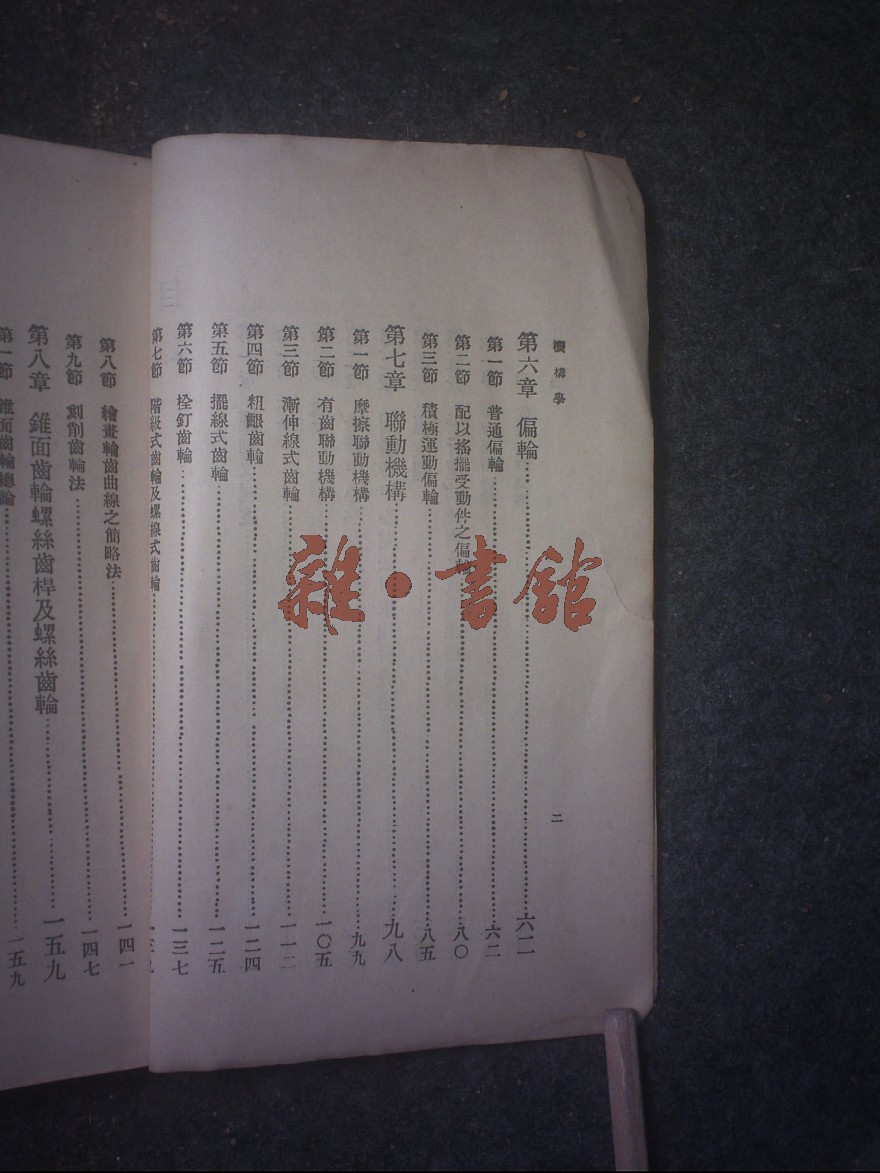 機構學
二
第六章 偏輪……六二
第一節 普通偏輪……六二
第二節 配以搖擺受動件之偏輪……八〇
第三節 積極運動偏輪……八五
第七章 聯動機構……九八
第一節 摩擦聯動機構……九九
第二節 有齒聯動機構……一〇五
第三節 漸伸線式齒輪……一一二
第四節 粗齦齒輪……一二四
第五節 擺線式齒輪……一二五
第六節 栓釘齒輪……一三七
第七節 階級式齒輪及螺線式齒輪……一三九
第八節 繪畫輪齒曲線之簡略法……一四一
第九節 割削齒輪法……一四七
第八章 錐面齒輪螺絲齒桿及螺絲齒輪……一五九
第一節 錐面齒輪總論……一五九
雜·書館